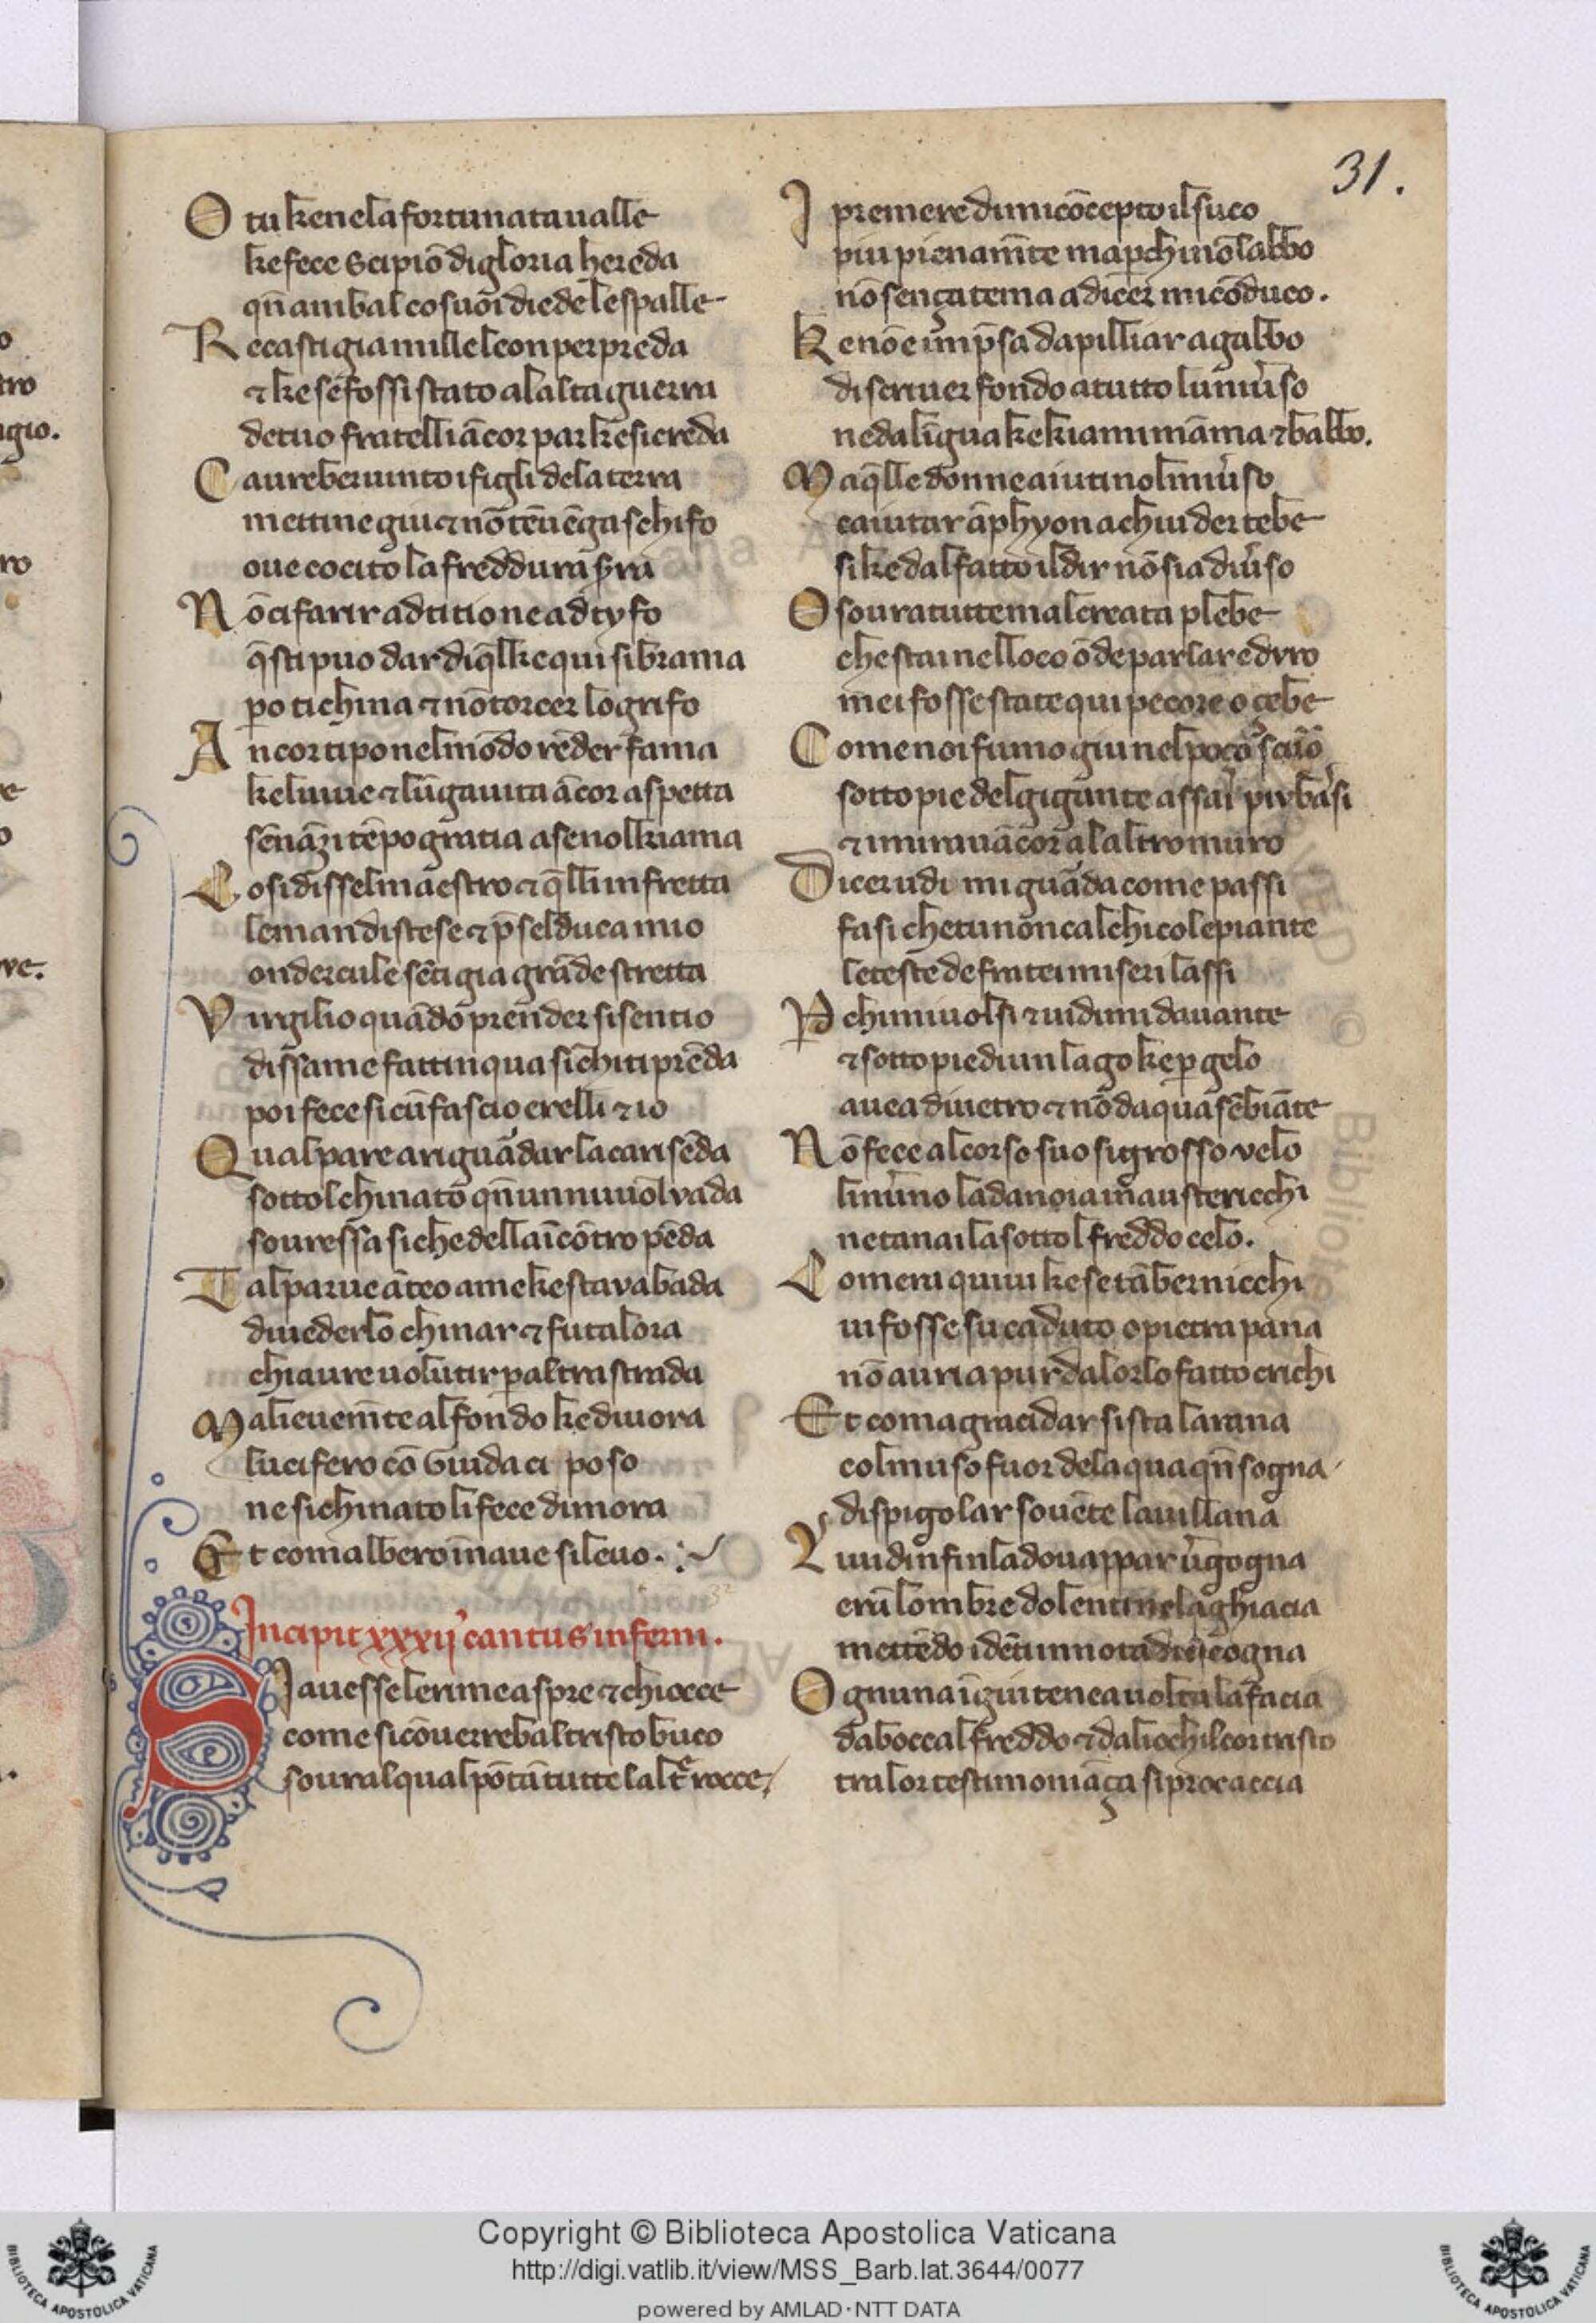 31.
O tu ke nela fortunata ualle
ke fece scipiō di gloria hereda
qn̄ anibal co suoi diede le spalle
R ecasti gia mille leon per preda
⁊ ke se fossi stato a lalta guerra
de tuo fratelli ācor par ke si creda
C aureber uinto i figli dela terra
mettine giu ⁊ nō tē uēga schifo
oue cocito la freddura sr̄ra
N ō ci far ir ad titio ne ad tyfo
q̄sti puo dar di q̄l ke qui si brama
p̱o ti china ⁊ nō torcer lo grifo
A ncor ti po nel mōdo rēder fama
kel uiue ⁊ lūga uita ācor aspetta
sēnāzi tēpo gratia a se nol kiama
C osi dissel maestro ⁊ q̄lli in fretta
le man distese ⁊ p̄sel duca mio
ondercule sēti gia grāde stretta
V irgilio quādo prender si sentio
diss a me fattin qua sichi ti prēda
poi fece si cū fascio erelli ⁊ io
Q ual pare a riguādar la carisēda
sottol chinato qn̄ un nuuol vada
souressa si che della īcōtro pēda
T al parue āteo a me ke staua bada
di uederlo chinar ⁊ fu talora
chi aure uolutir p̱ altra strada
M a lieuem̄te al fondo ke diuora
lucifero cō Giuda ci poso
ne si chinato li fece dimora
E t com albero ī naue si leuo.
Incipit xxxij cantus inferni.
S Iauesse le rime aspre ⁊ chiocce
come si cōuerrebal tristo buco
soural qual pōtā tutte laltre rocce
I premere di mi cōcepto il suco
piu pienam̄te ma p̱chi nō labbo
nō sença tema a dicer mi cōduco.
K e nō e imp̄sa da pilliar a gabbo
discriuer fondo a tutto luniũso
ne da līgua ke kiami māma ⁊ babbo.
M a q̄lle donne aiutinol mio ũso
caiutar āphyon a chiuder tebe
si ke dal fatto il dir nō sia diũso
O soura tutte mal creata plebe
che stai nel loco ōde parlar e dvro
mei foste state qui pecore o çebe
C ome noi fumo giu nel poço scuro
sotto pie del gigante assai piv basi
⁊ i miraua ācor a laltro muro
D icer udi mi guāda come passi
fa si che tu non calchi cole piante
le teste de fratei miseri lassi
P̱ chi mi uolsi ⁊ uidimi dauante
⁊ sotto piedi un lago ke p̱ gelo
auea di uietro ⁊ nō daqua sēbiāte
N ō fece al corso suo si grosso velo
linũno la danoia in austericchi
ne tanai la sottol freddo celo.
C omera quiui ke se tābernicchi
ui fosse su caduto o pietrapana
nō auria pur da lorlo fatto crichi
E t com a gracidar si sta la rana
col muso fuor delaqua qn̄ sogna
di spigolar souēte la uillana
L iuidinfin la doua ppar ũgogna
erā lombre dolenti nela ghiacia
mettēdo i dēti in nota di cicogna
O gnuna īgiu tenea uolta la facia
da bocca al freddo ⁊ dali ochil cor tristo
tra lor testimoniāça si procaccia
Copyright © Biblioteca Apostolica Vaticana
http://digi.vatlib.it/view/MSS_Barb.lat.3644/0077
powered by AMLAD·NTT DATA
BIBLIOTECA APOSTOLICA VATICANA
BIBLIOTECA APOSTOLICA VATICANA